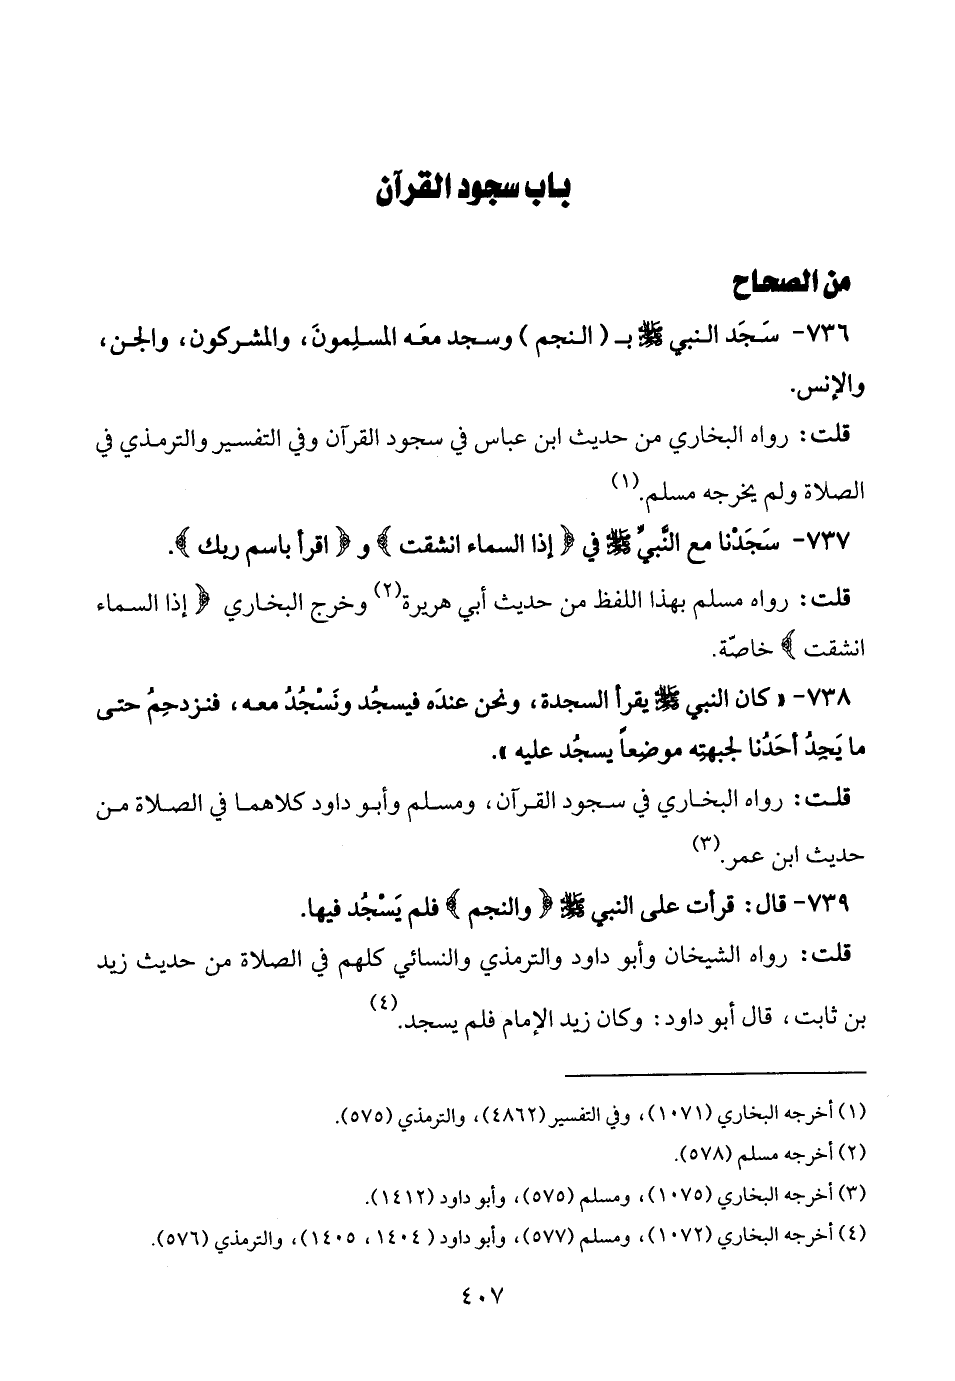 باب سجود القرآن
من الصحاح
٧٣٦- سَجَد النبي ﷺ بـ ( النجم ) وسجد معَه المسلِمونَ، والمشركون، والجن،
والإنس.
قلت: رواه البخاري من حديث ابن عباس في سجود القرآن وفي التفسير والترمذي في
الصلاة ولم يخرجه مسلم.(١)
٧٣٧- سَجَدْنا مع النَّبيِّ ﷺ في ﴿ إذا السماء انشقت ﴾ و ﴿ اقرأ باسم ربك ﴾.
قلت: رواه مسلم بهذا اللفظ من حديث أبي هريرة(٢) وخرج البخاري ﴿ إذا السماء
انشقت ﴾ خاصّة.
٧٣٨- « كان النبي ﷺ يقرأ السجدة، ونحن عندَه فيسجُد ونَسْجُدُ معه، فنزدحِمُ حتى
ما يَجِدُ أحَدُنا لجبهتِه موضِعاً يسجُد عليه ».
قلت: رواه البخاري في سجود القرآن، ومسلم وأبو داود كلاهما في الصلاة من
حديث ابن عمر.(٣)
٧٣٩- قال: قرأت على النبي ﷺ ﴿ والنجم ﴾ فلم يَسْجُد فيها.
قلت: رواه الشيخان وأبو داود والترمذي والنسائي كلهم في الصلاة من حديث زيد
بن ثابت، قال أبو داود: وكان زيد الإمام فلم يسجد.(٤)
(١) أخرجه البخاري (١٠٧١)، وفي التفسير (٤٨٦٢)، والترمذي (٥٧٥).
(٢) أخرجه مسلم (٥٧٨).
(٣) أخرجه البخاري (١٠٧٥)، ومسلم (٥٧٥)، وأبو داود (١٤١٢).
(٤) أخرجه البخاري (١٠٧٢)، ومسلم (٥٧٧)، وأبو داود ( ١٤٠٤، ١٤٠٥)، والترمذي (٥٧٦).
٤٠٧